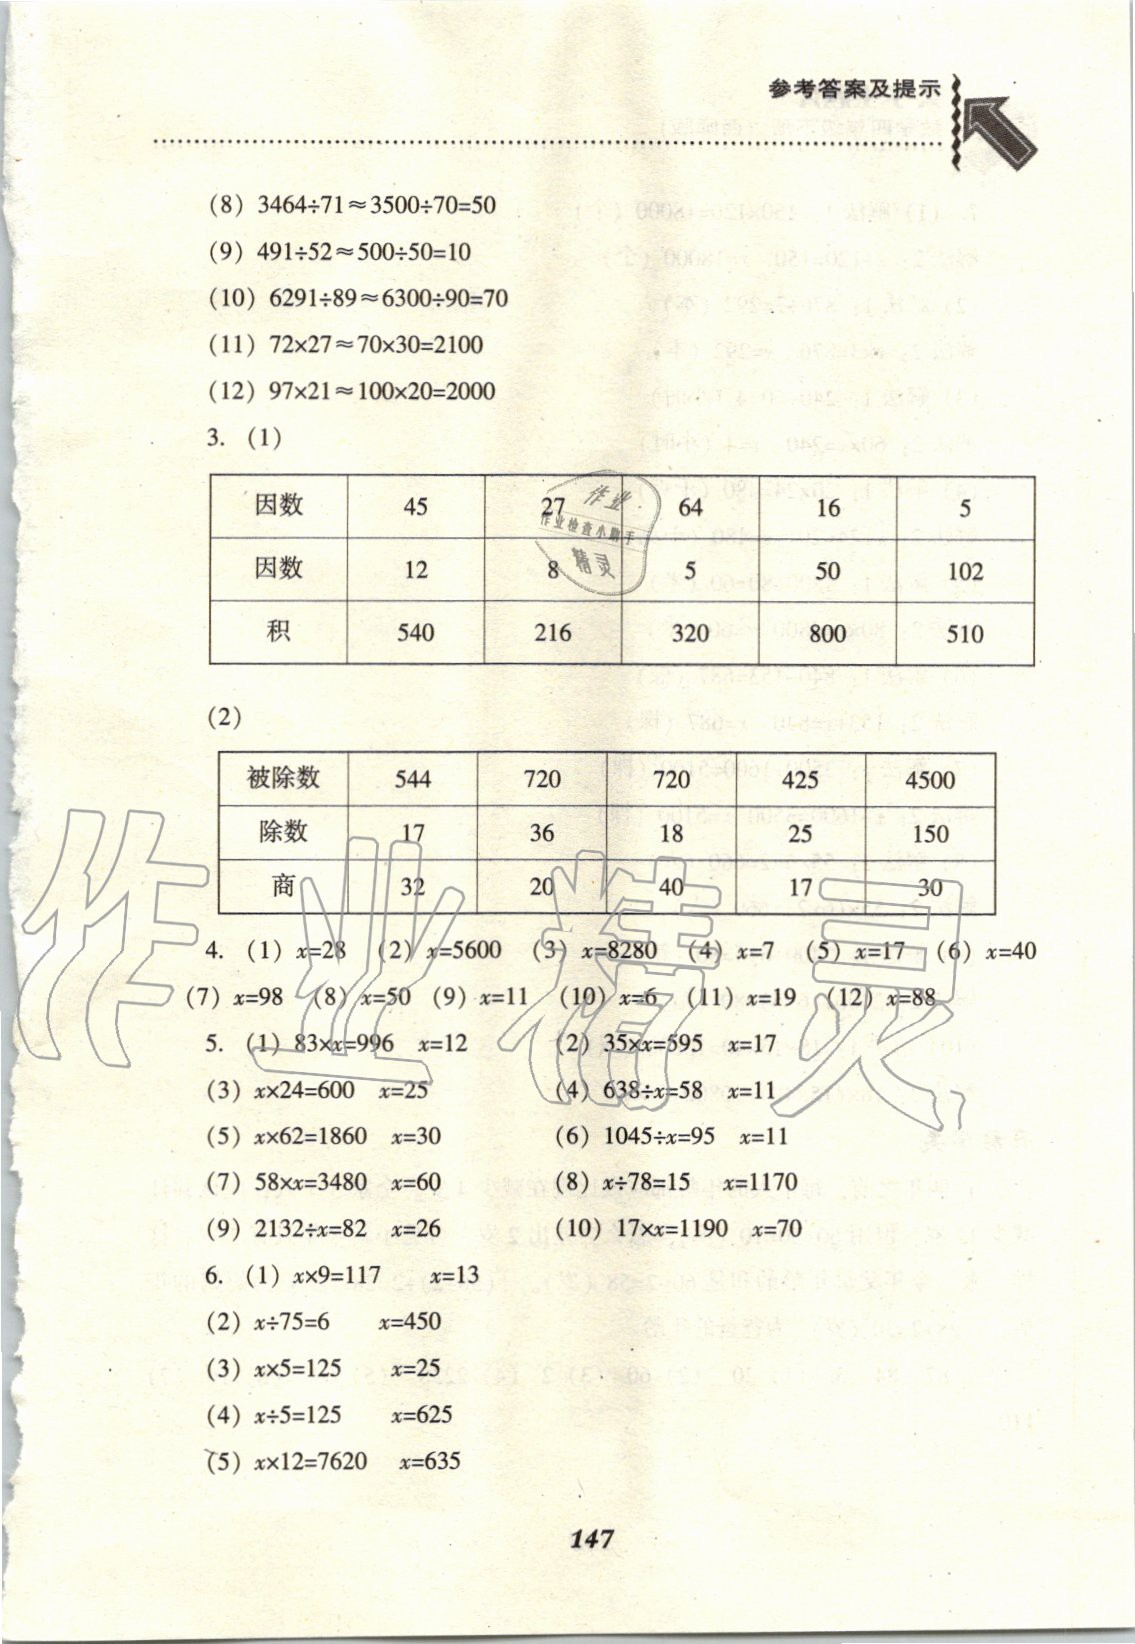 参考答案及提示
(8) 3464÷71≈3500÷70=50
(9) 491÷52≈500÷50=10
(10) 6291÷89≈6300÷90=70
(11) 72×27≈70×30=2100
(12) 97×21≈100×20=2000
3. (1)
因数 45 27 64 16 5
因数 12 8 5 50 102
积 540 216 320 800 510
(2)
被除数 544 720 720 425 4500
除数 17 36 18 25 150
商 32 20 40 17 30
4. (1) x=28 (2) x=5600 (3) x=8280 (4) x=7 (5) x=17 (6) x=40
(7) x=98 (8) x=50 (9) x=11 (10) x=6 (11) x=19 (12) x=88
5. (1) 83×x=996 x=12 (2) 35×x=595 x=17
(3) x×24=600 x=25 (4) 638÷x=58 x=11
(5) x×62=1860 x=30 (6) 1045÷x=95 x=11
(7) 58×x=3480 x=60 (8) x÷78=15 x=1170
(9) 2132÷x=82 x=26 (10) 17×x=1190 x=70
6. (1) x×9=117 x=13
(2) x÷75=6 x=450
(3) x×5=125 x=25
(4) x÷5=125 x=625
(5) x×12=7620 x=635
147
作业
作业检查小助手
精灵
作业精灵